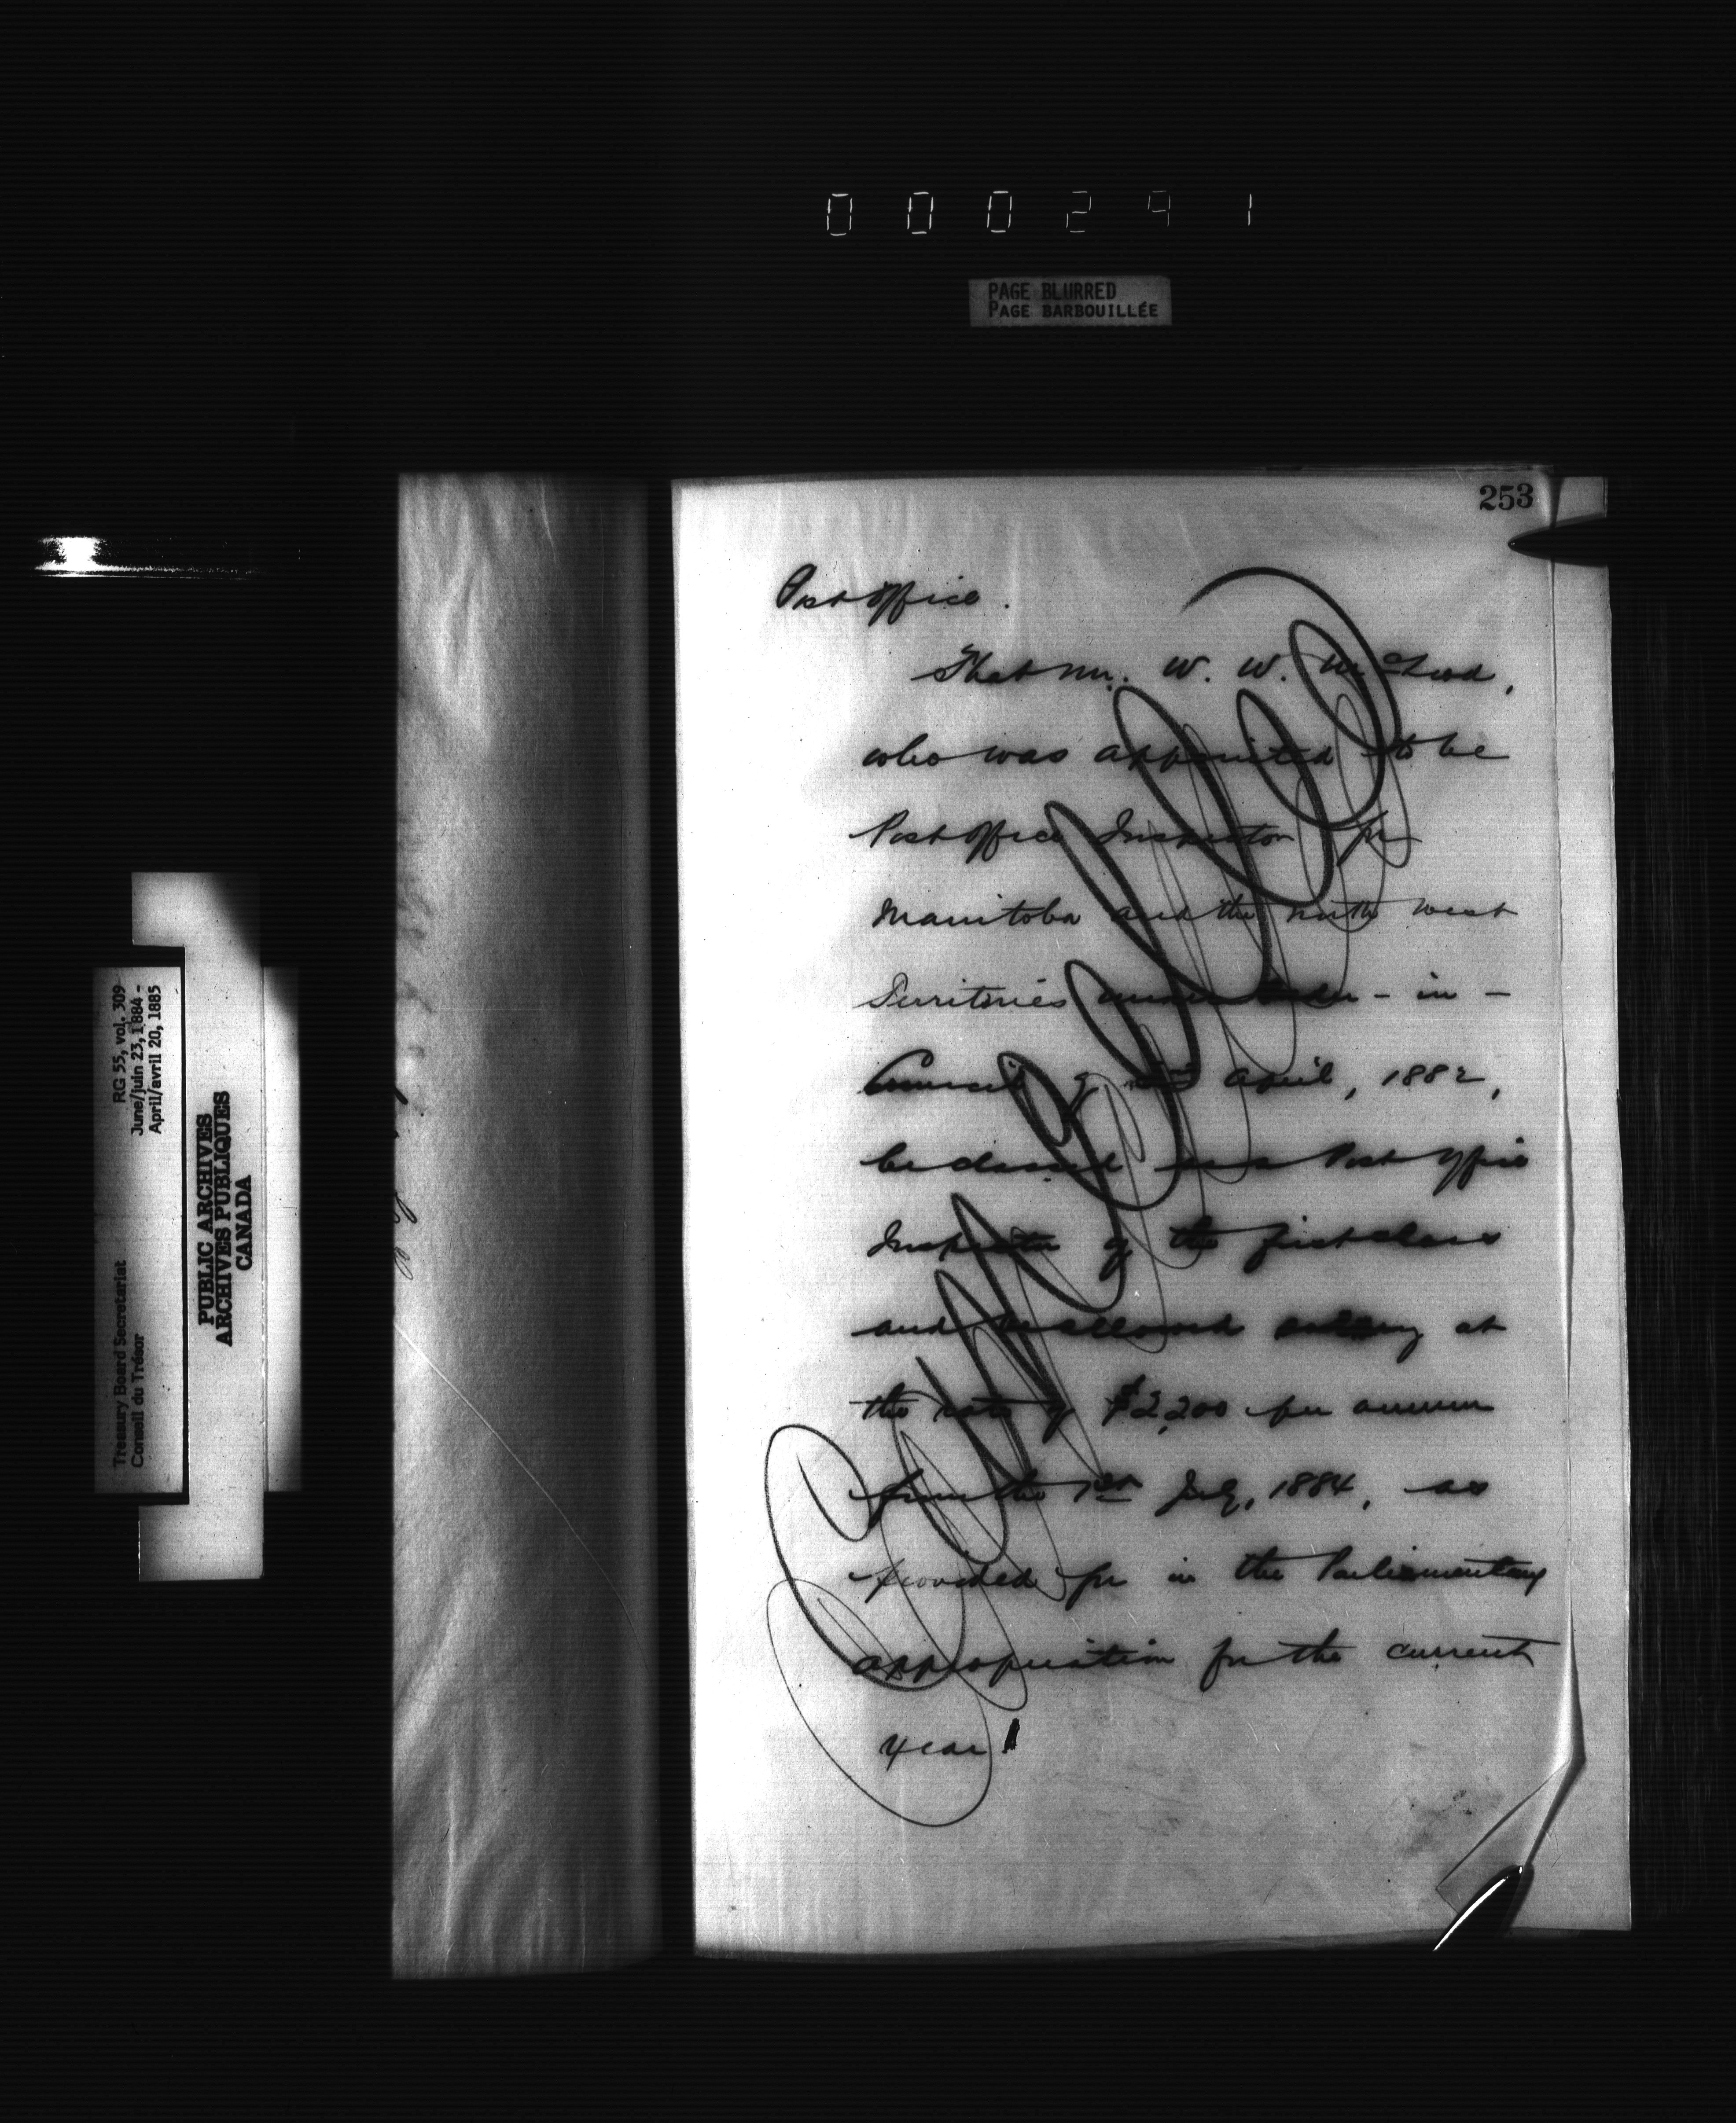 000291
PAGE BLURRED
PAGE BARBOUILLÉE
253
Post Office.
That Mr. W. W. McLeod,
who was appointed to be
Post Office Inspector for
Manitoba and the North West
Territories under Order-in-
Council of April, 1882,
be classed as a Post Office
Inspector of the first class
and be allowed salary at
the rate of $2,200 per annum
from the 1st July, 1884, as
provided for in the Parliamentary
appropriation for the current
year
Cancelled
RG 55, vol. 309
June/juin 23, 1884 -
April/avril 20, 1885
Treasury Board Secretariat
Conseil du Trésor
PUBLIC ARCHIVES
ARCHIVES PUBLIQUES
CANADA